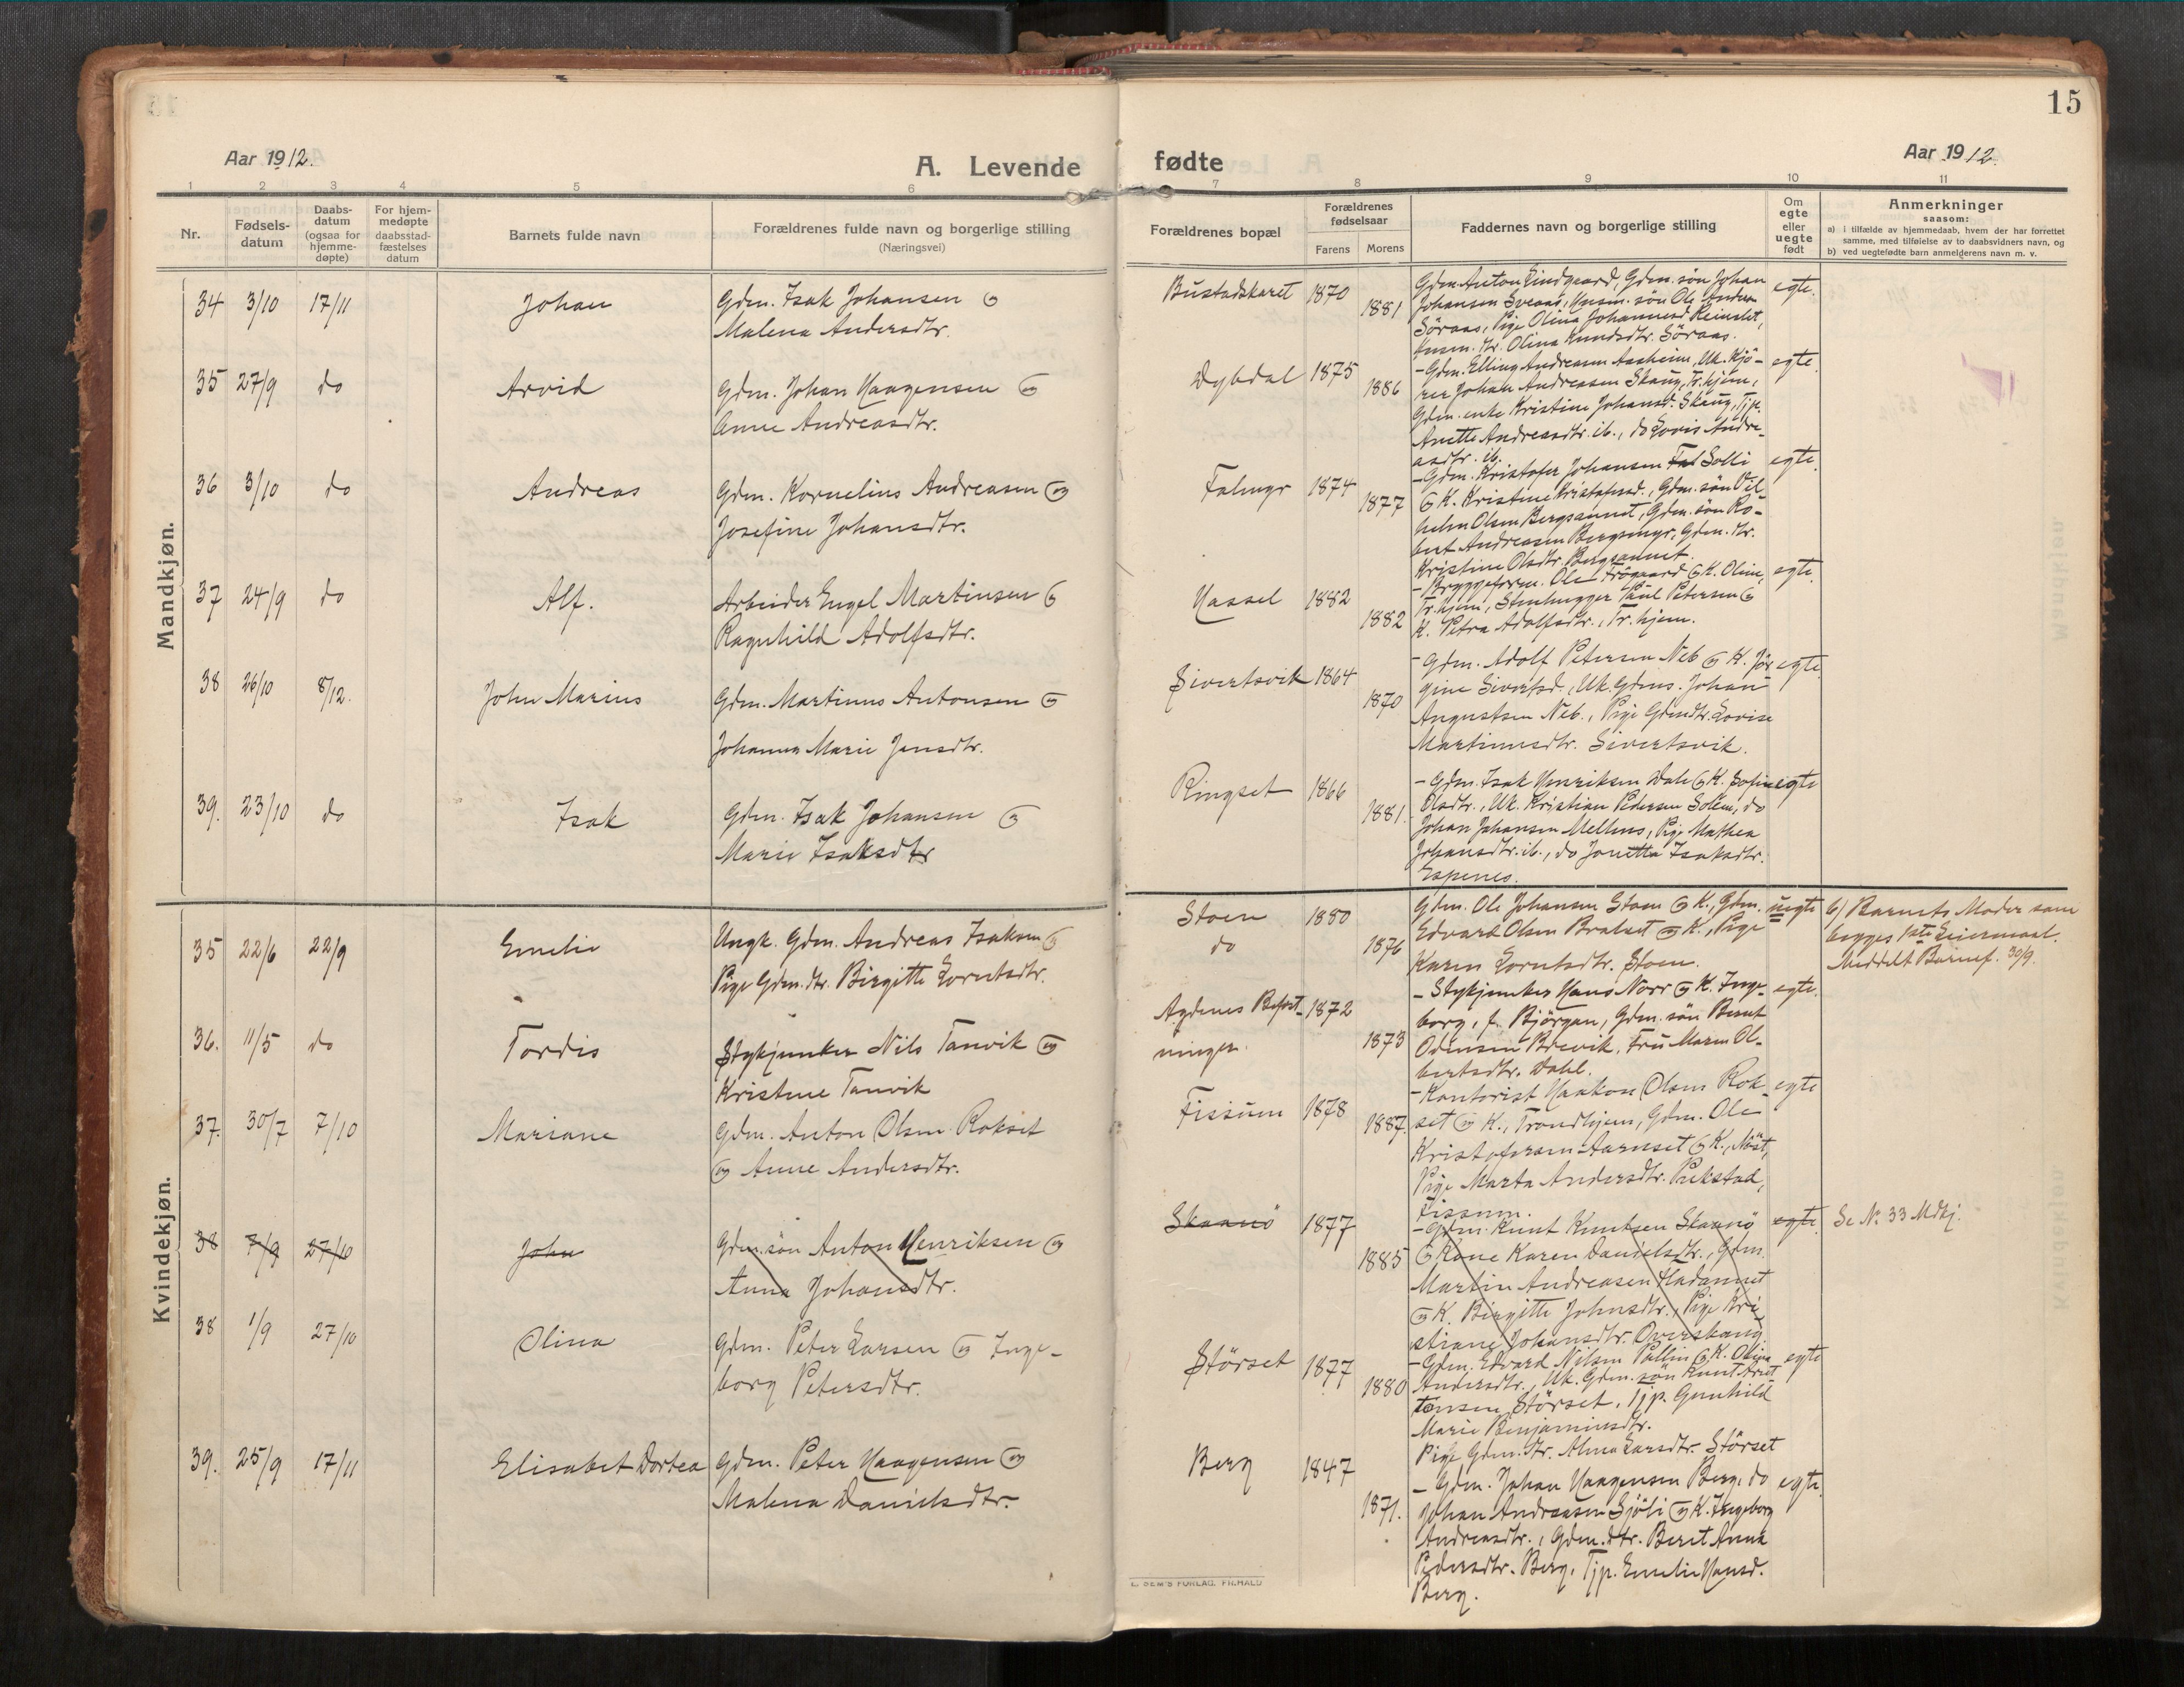 15
Aar 1912.
A. Levende fødte
Aar 1912.
1 2 3 4 5 6 7 8 9 10 11
Nr.
Fødsels-
datum
Daabs-
datum
(ogsaa for
hjemme-
døpte)
For hjem-
medøpte
daabsstad-
fæstelses
datum
Barnets fulde navn
Forældrenes fulde navn og borgerlige stilling
(Næringsvei)
Forældrenes bopæl
Forældrenes
fødselsaar
Farens Morens
Faddernes navn og borgerlige stilling
Om
egte
eller
uegte
født
Anmerkninger
saasom:
a) i tilfælde av hjemmedaab, hvem der har forrettet
samme, med tilføielse av to daabsvidners navn, og
b) ved uegtefødte barn anmelderens navn m. v.
Mandkjøn.
34 3/10 17/11 Johan
Gdm. Isak Johansen og
Malena Andersdtr.
Bustadskaret 1870 1881
Gdm. Anton Lindgaard, Gdm. søn Johan
Johansen Sveaas, Husm. søn Ole Anders
Söraas, Pige Olina Johannesd. Reinslet,
Husm. dtr. Olina Knudsdtr. Söraas.
egte.
35 27/9 do Arvid
Gdm. Johan Haagensen og
Anne Andreasdtr.
Dybdal 1875 1886
- Gdm. Elling Andreasen Aasheim, Uk. Kjö-
rer Johan Andreasen Skaug, Tr.hjem,
Gdm. enke Kristine Johansd. Skaug, Tjp.
Anette Andreasdtr. ib., do Lovis Andre-
asdtr. ib.
egte.
36 3/10 do Andreas
Gdm. Kornelius Andreasen og
Josefine Johansdtr.
Falmyr 1874 1877
- Gdm. Kristofer Johansen Fal Solli
og K. Kristine Kristofersd., Gdm. søn Vil
helm Olsen Bergsaunet, Gdm. søn Ro-
bert Andreasen Bergsmyr, Gdm. dtr.
Kristine Olsdtr. Bergsaunet.
egte.
37 24/9 do Alf.
Arbeider Engel Martinsen og
Ragnhild Adolfsdtr.
Hassel 1882 1882
- Bryggeform. Ole Trögaard og K. Oline,
Tr.hjem, Stenhugger Paul Petersen og
K. Petra Adolfsdtr., Tr.hjem.
egte.
38 26/10 8/12. John Marius
Gdm. Martinus Antonsen og
Johanna Marie Jensdtr.
Sivertsvik 1864 1870
- Gdm. Adolf Petersen Neb og K. Jör
gine Sivertsd., Uk. Gdms. Johan
Augustsen Neb., Pige Gdmdtr. Lovise
Martinusdtr. Sivertsvik.
egte.
39. 23/10 do Isak
Gdm. Isak Johansen og
Marie Isaksdtr
Ringset 1866 1881.
- Gdm. Isak Henriksen Dale og K. Sofie
Olsdtr., Uk. Kristian Pedersen Solem, do
Johan Johansen Mellnes, Pige Mathea
Johansdtr. ib., do Jonetta Isaksdtr.
Espenes.
egte
Kvindekjøn.
35 22/6 22/9 Emelie
Ungk. Gdm. Andreas Isaksen og
Pige Gdm. dtr. Birgitte Lorntsdtr.
Stoen
do
1880 1876
Gdm. Ole Johansen Stoen og K., Gdm.
Edvard Olsen Bratset og K., Pige
Karen Lorntsdtr. Stoen.
uegte
b) Barnets Moder som
begges 1ste Leiermaal.
Meddelt Barnef. 30/9.
36. 11/5 do Tordis
Stykjunker Nils Tanvik og
Kristine Tanvik
Agdenes Befæst-
ninger.
1872 1873
- Stykjunker Hans Norr og K. Inge-
borg, f. Björgan, Gdm. søn Bernt
Odinsen Brevik, Fru Maren Ol-
bertsdtr. Dahl.
egte.
37. 30/7 7/10 Mariane
Gdm. Anton Olsen Rokset
og Anne Andersdtr.
Fissum 1878 1887.
- Kontorist Haakon Olsen Rok-
set og K., Trondhjem, Gdm. Ole
Kristofersen Aarnset og K., Nöst,
Pige Marta Andersdtr. Pukstad,
Fissum.
egte
38 7/9 27/10 John
Gdm. søn Anton Henriksen og
Anna Johansdtr.
Skaanö 1877 1885
- Gdm. Knut Knutsen Skaanö
og Kone Karen Danielsdtr., Gdm.
Martin Andreasen Hadaunet
og K. Birgitte Johnsdtr., Pige Kri-
stiane Johansdtr. Overskaug.
egte.
Se No. 33 Mdkj.
38 1/9 27/10 Olina
Gdm. Peter Larsen og Inge-
borg Petersdtr.
Störset 1877 1880
- Gdm. Edvard Nilsen Pallin og K. Oline
Andersdtr., Uk. Gdm. søn Knut Arnt
tonsen Störset, Tjp. Gunhild
Marie Benjaminsdtr.
Pige Gdm. dtr. Alma Larsdtr. Störset
egte
39. 25/9 17/11 Elisabet Dortea
Gdm. Peter Haagensen og
Malena Danielsdtr.
Berg 1847 1871.
- Gdm. Johan Haagensen Berg, do
Johan Andreasen Sjöli og K. Ingeborg
Andreasdtr., Gdm. dtr. Beret Anna
Pedersdtr. Berg, Tjp. Emelie Hansd.
Berg.
egte.
E. SEM'S FORLAG, FR.HALD